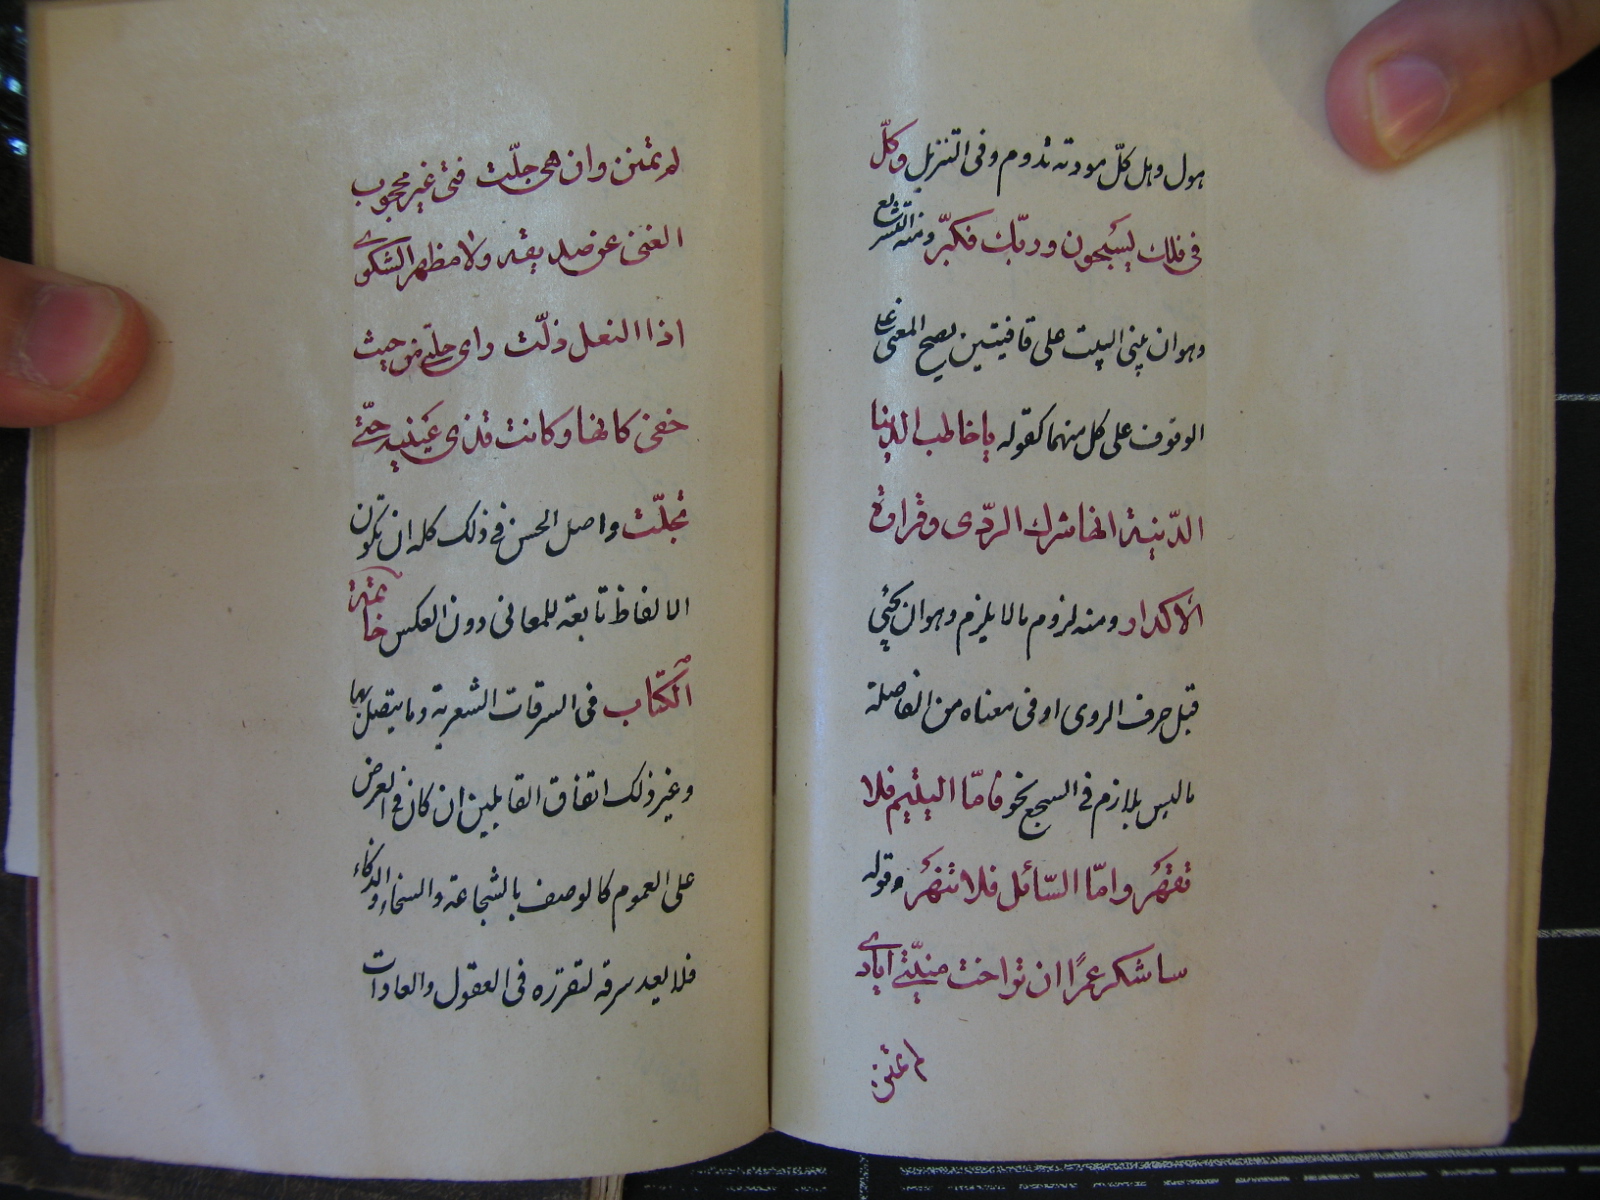 هول وهل كلّ مودته تدوم وفى التنزيل وكلّ
فى فلك يسبحون وربّك فكبّر ومنه التشريع
وهو ان يبنى البيت على قافيتين يصح المعنى على
الوقوف على كل منهما كقوله ياخاطب الدنيا
الدّنية انها شرك الردّى وقرارة
الاكدار ومنه لزوم مالا يلزم وهو ان يجئ
قبل حرف الروى او فى معناه من الفاصلة
ماليس بلازم فى السجع نحو فامّا اليتيم فلا
تقهر وامّا السّائل فلا تنهر وقوله
ساشكر عمرًا ان تراخت منيّتى ايادى
لم تمنن
لم تمنن وان هى جلّت فتى غير محجوب
الغنى عن صديقه ولا مظهر الشكوى
اذا النعل زلّت راى خلّتى من حيث
خفى كانها وكانت قذى عينيه حتّى
تجلّت واصل الحسن فى ذلك كله ان تكون
الالفاظ تابعة للمعانى دون العكس خاتمة
الكتاب فى السرقات الشعرية وما يتصل بها
وغير ذلك اتفاق القايلين ان كان فى الغرض
على العموم كالوصف بالشجاعة والسخاء والذكاء
فلا يعد سرقة لتقرره فى العقول والعادات